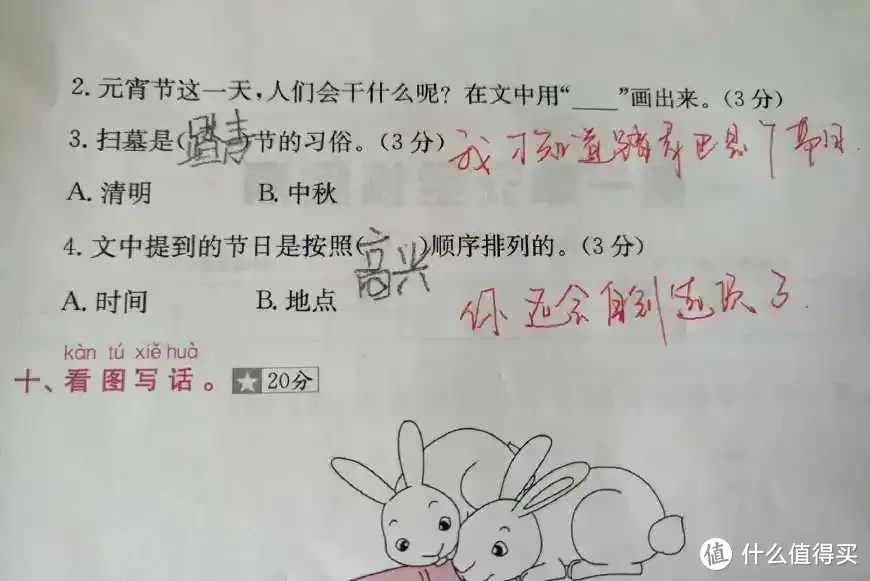 2. 元宵节这一天,人们会干什么呢? 在文中用“____”画出来。(3分)
3. 扫墓是(踏青)节的习俗。(3分) 我才知道踏青也是个节日.
A. 清明 B. 中秋
4. 文中提到的节日是按照(高兴)顺序排列的。(3分)
A. 时间 B. 地点
你还会自创选项了.
kàn tú xiě huà
十、看图写话。★20分
值 什么值得买